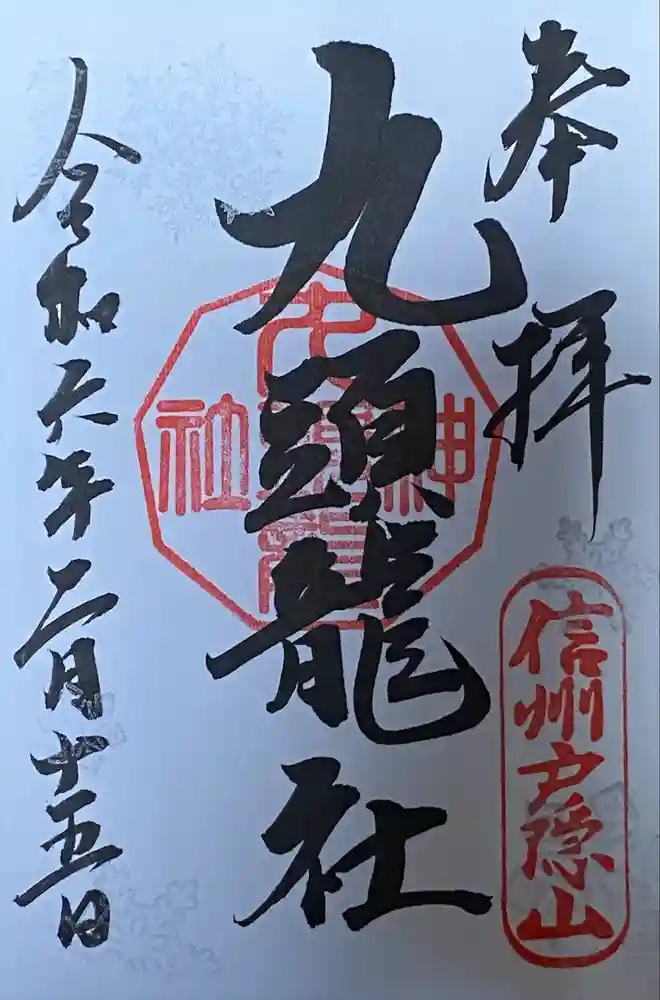 奉拝
信州戸隠山
九頭龍社
九頭龍
神社
令和六年二月十五日